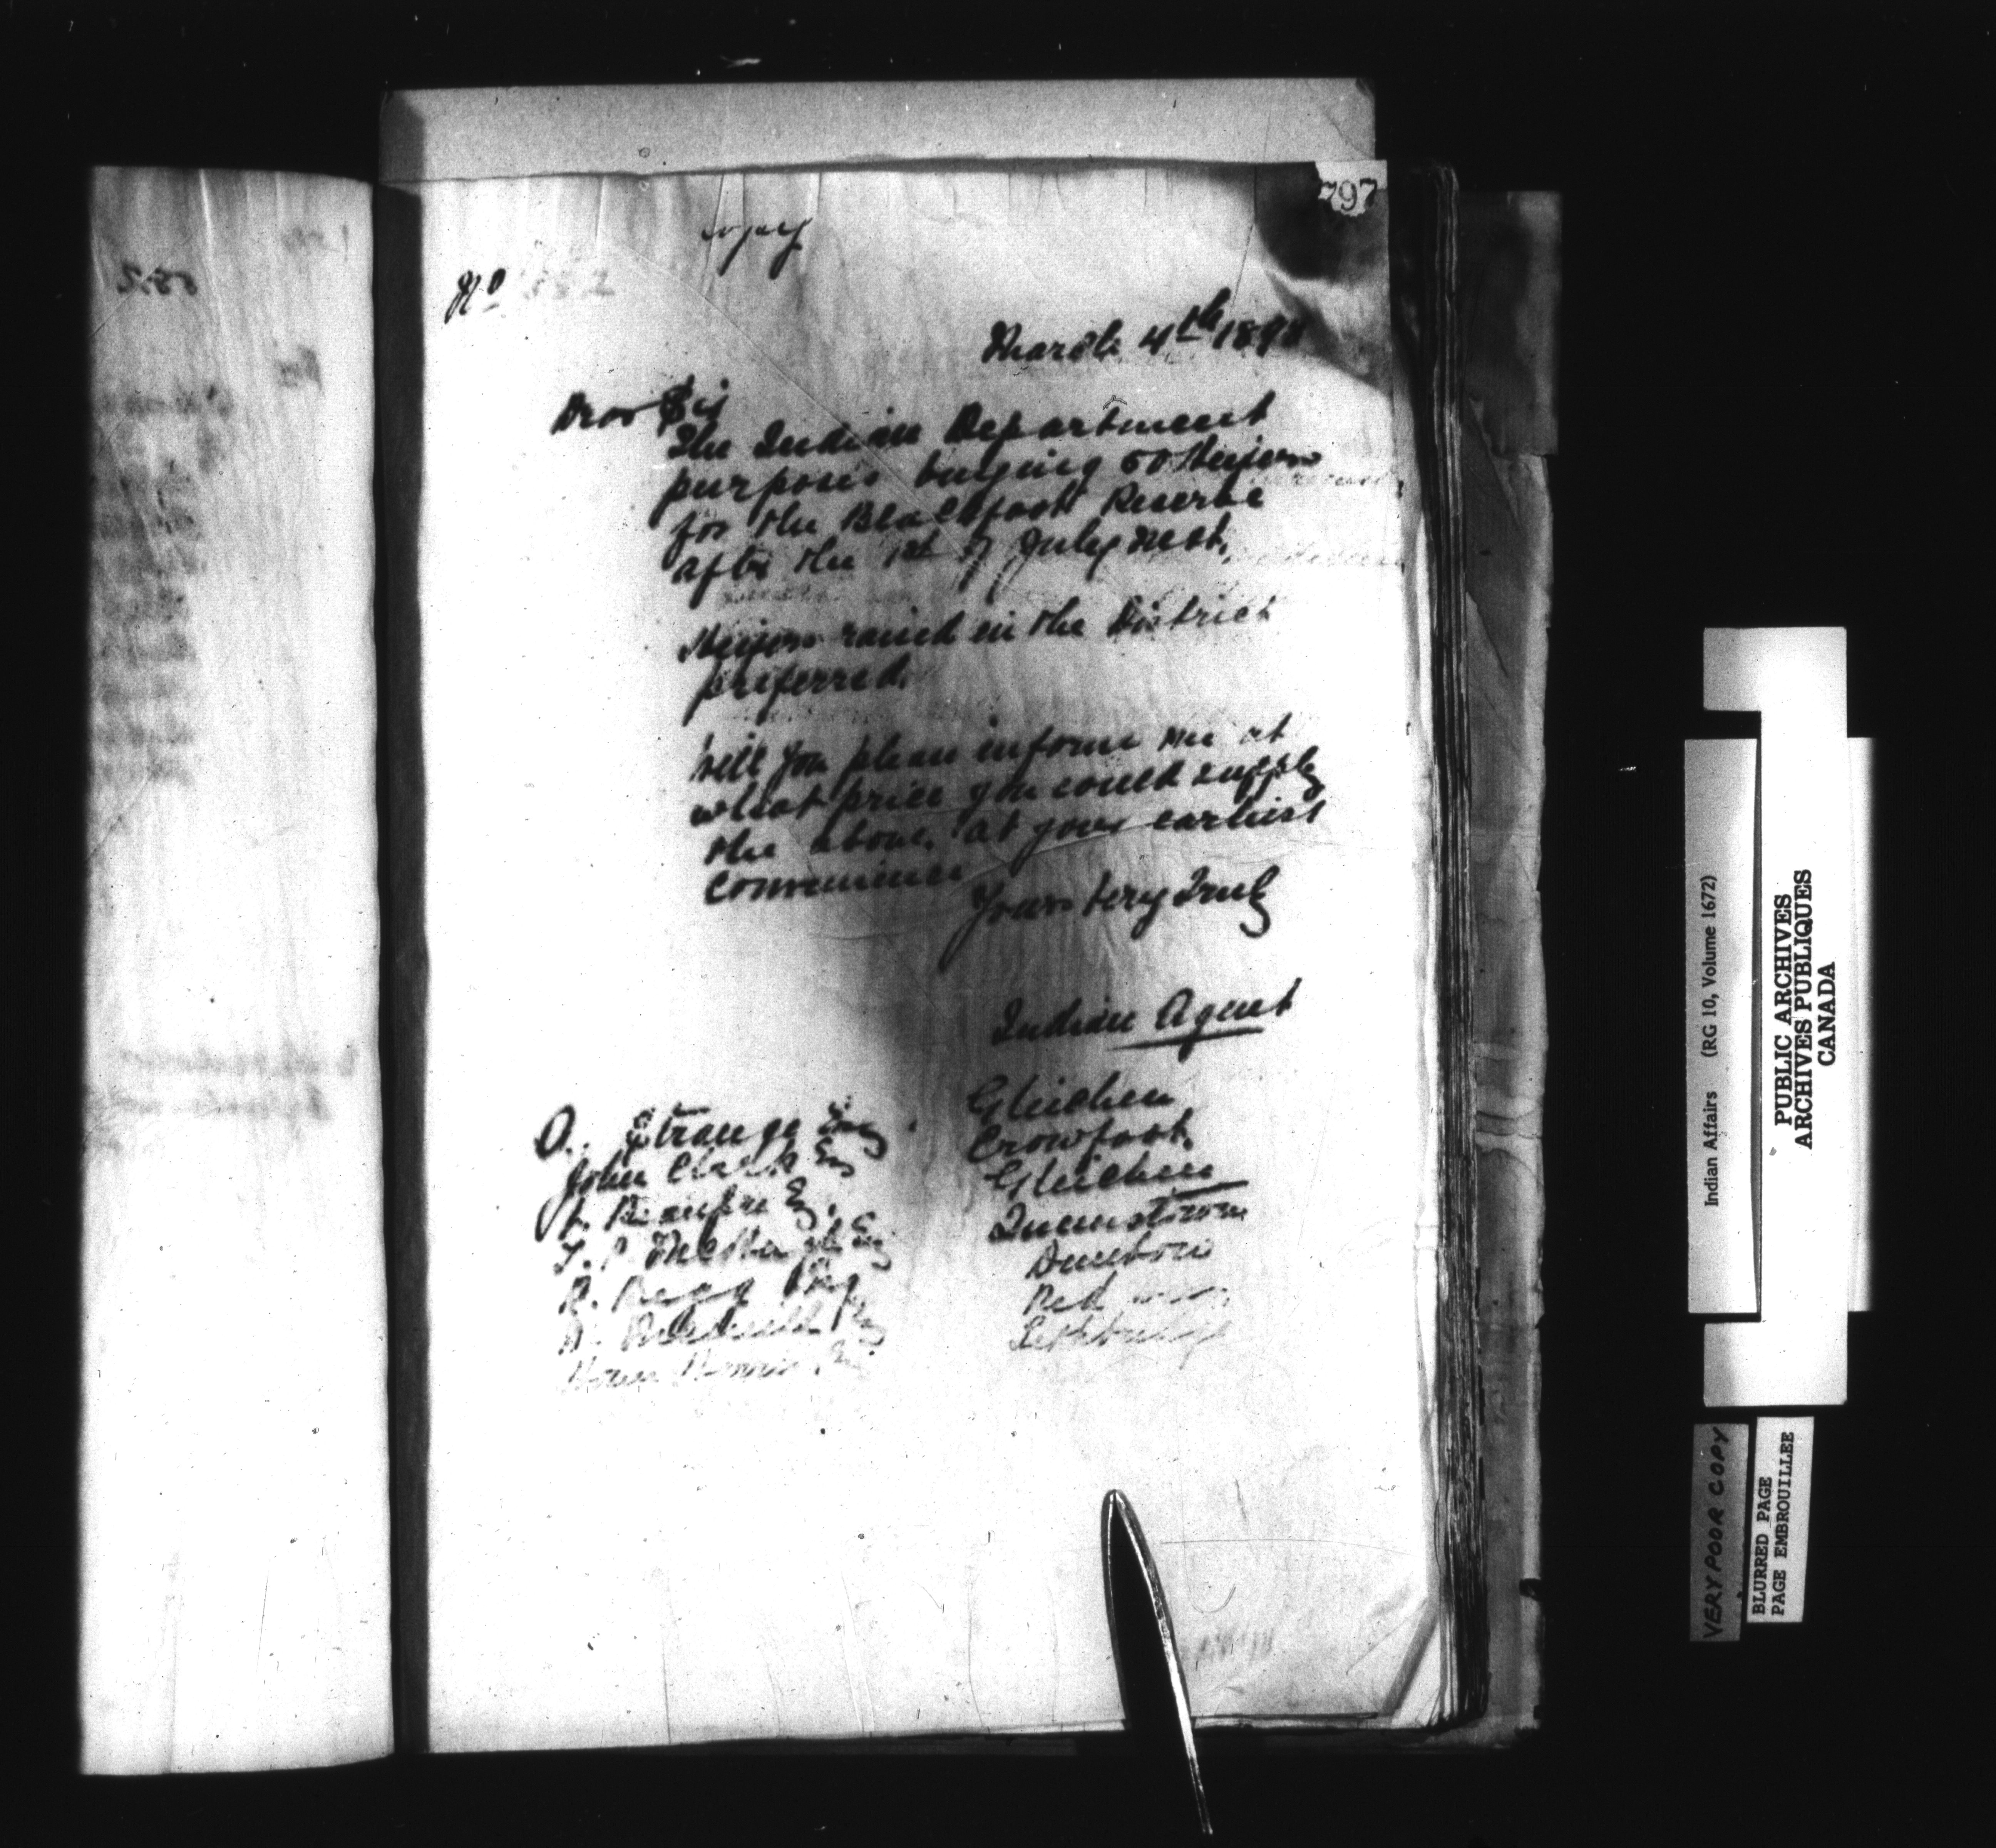 797
copy
No 582
March 4th 1898
Dear Sir
The Indian Department
purposes buying 50 Heifers
for the Blackfoot Reserve
after the 1st of July next.
Heifers raised in the District
preferred.
Will you please inform me at
what price you could supply
the above, at your earliest
convenience
Yours very Truly
Indian Agent
O. Strange Esq. Gleichen
John Clark Esq Crowfoot.
Esq. Gleichen
T. P. Esq Queenstown
R. Begg Esq Dunbow
Esq Red
Esq Lethbridge
Indian Affairs (RG 10, Volume 1672)
PUBLIC ARCHIVES
ARCHIVES PUBLIQUES
CANADA
VERY POOR COPY
BLURRED PAGE
PAGE EMBROUILLEE